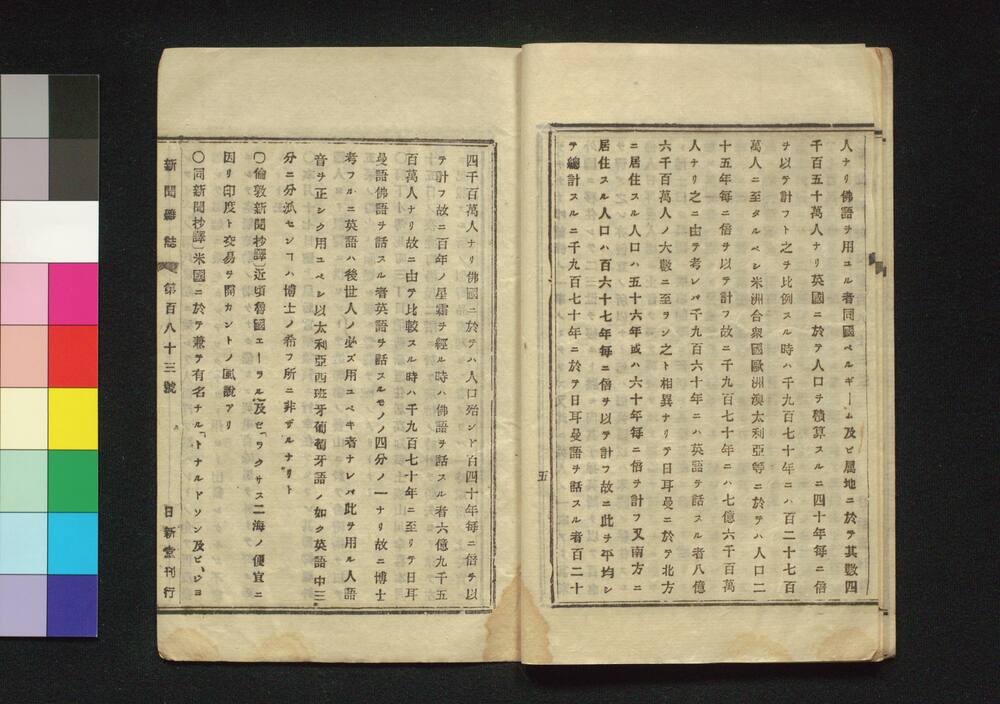 人ナリ佛語ヲ用ユル者同國ベルギーム及ビ屬地ニ於テ其數四
千百五十萬人ナリ英國ニ於テ人口ヲ積算スルニ四十年每ニ倍
ヲ以テ計フト之ヲ比例スル時ハ千九百七十年ニハ百二十七百
萬人ニ至タルベシ米洲合衆國歐洲澳太利亞等ニ於テハ人口二
十五年每ニ倍ヲ以テ計フ故ニ千九百七十年ニハ七億六千百萬
人ナリ之ニ由テ考レバ千九百六十年ニハ英語ヲ話スル者八億
六千百萬人ノ六數ニ至ヲン之ト相異ナリテ日耳曼ニ於テ北方
ニ居住スル人口ハ五十六年或ハ六十年每ニ倍ヲ計フ又南方ニ
居住スル人口ハ百六十七年每ニ倍ヲ以テ計フ故ニ此ヲ平均シ
テ總計スルニ千九百七十年ニ於テ日耳曼語ヲ話スル者百二十
五
四千百萬人ナリ佛國ニ於テハ人口殆ンド百四十年每ニ倍ヲ以
テ計フ故ニ百年ノ星霜ヲ經ル時ハ佛語ヲ話スル者六億九千五
百萬人ナリ故ニ由テ比較スル時ハ千九百七十年ニ至リテ日耳
曼語佛語ヲ話スル者英語ヲ話スルモノノ四分ノ一ナリ故ニ博士
考フルニ英語ハ後世人ノ必ズ用ユベキ者ナレバ此ヲ用ル人語
音ヲ正シク用ユベシ以太利亞西班牙葡萄牙語ノ如ク英語中三
分ニ分派センヿハ博士ノ希フ所ニ非ザルナリト
〇倫敦新聞抄譯〕近頃魯國エーラル及ゼ「ヲクサス二海ノ便宜ニ
因リ印度ト交易ヲ開カントノ風說アリ
〇同新聞抄譯〕米國ニ於テ兼テ有名ナル「トナルドソン及ビ、ジヨ
新聞雜誌 第百八十三號 日新堂刊行